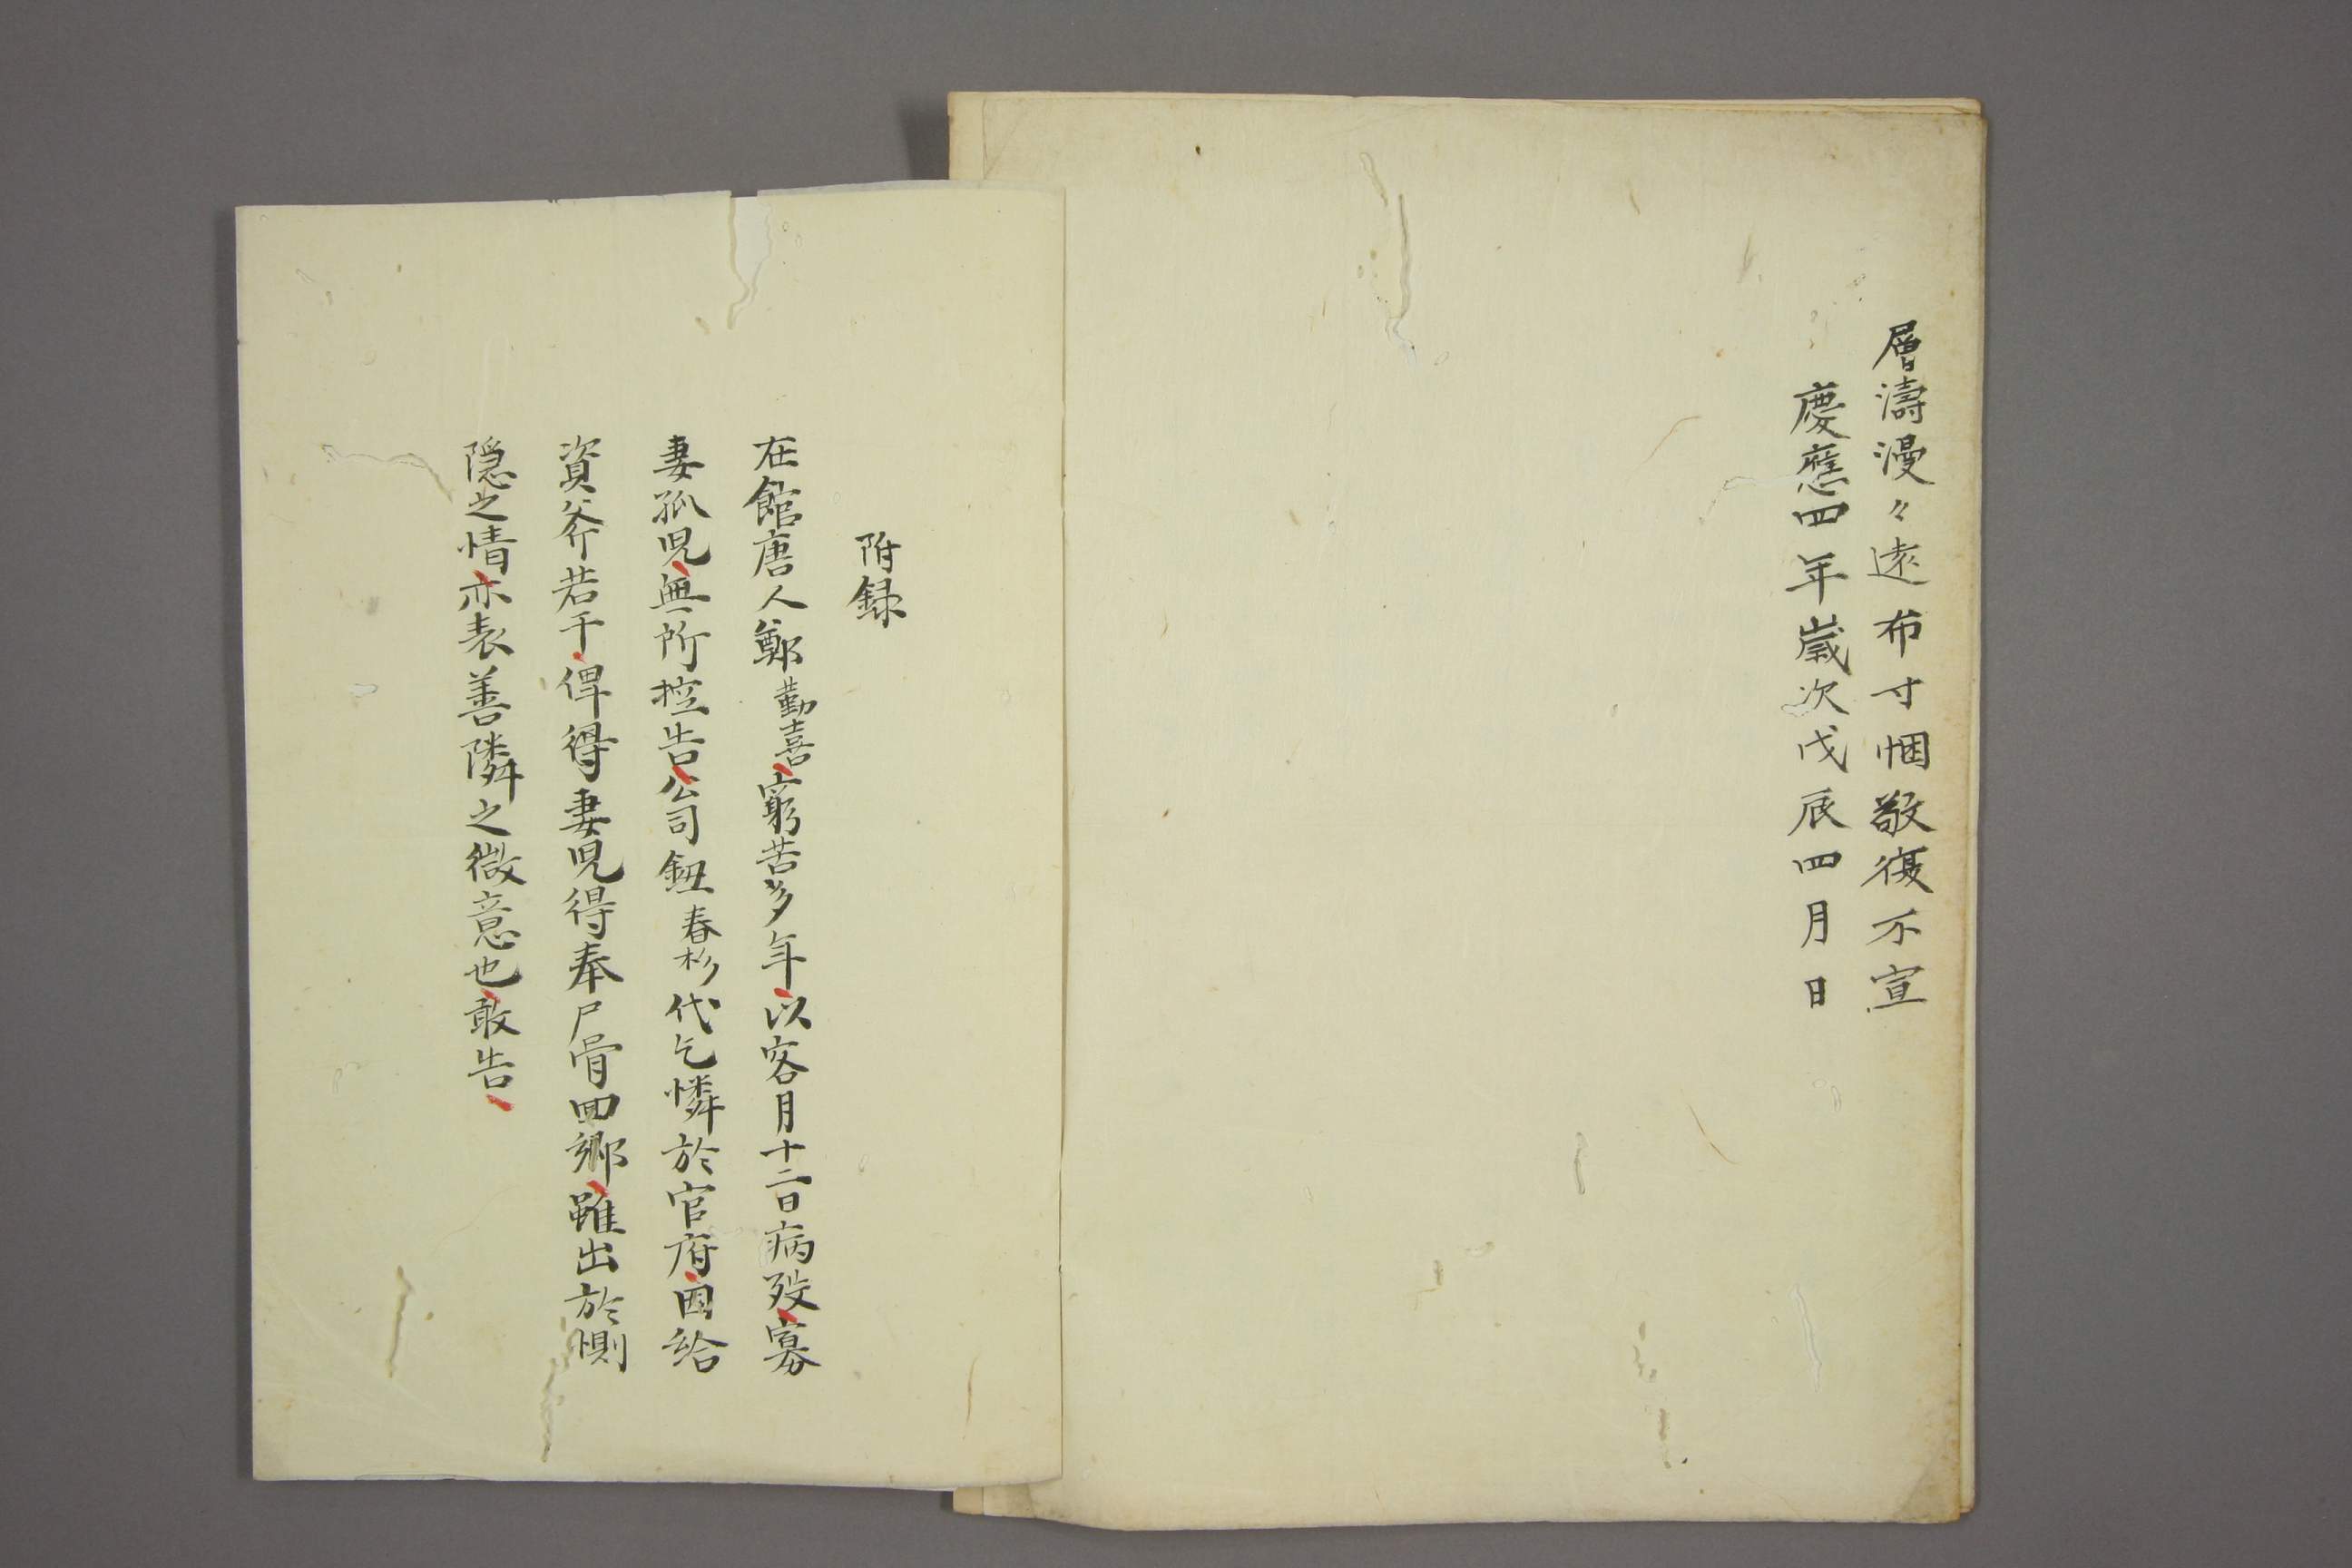 層濤漫々遠布寸悃敬復不宣
慶應四年歳次戊辰四月日
附録
在館唐人鄭勤喜、窮苦多年、以客月十二日病歿、寡
妻孤児、無所控告、公司鈕春杉代乞憐於官府、因給
資斧若干、俾得妻児得奉尸骨回郷、雖出於惻
隠之情、亦表善隣之微意也、敢告、